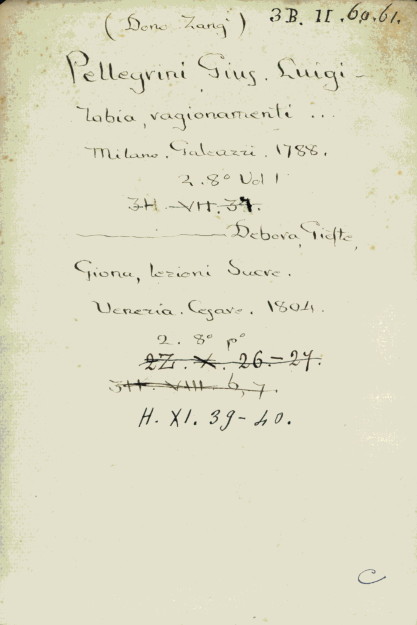 (Dono Zangi) 3B. II. 60.61.
Pellegrini Gius. Luigi -
Tobia, ragionamenti ...
Milano. Galeazzi. 1788.
2. 8° Vol 1
3H - VII. 37.
Debora, Giefte,
Giona, lezioni Sacre.
Venezia. Cesare. 1804.
2. 8° p°
2Z. X. 26.-27.
3H. VIII. 6, 7.
H. XI. 39-40.
C